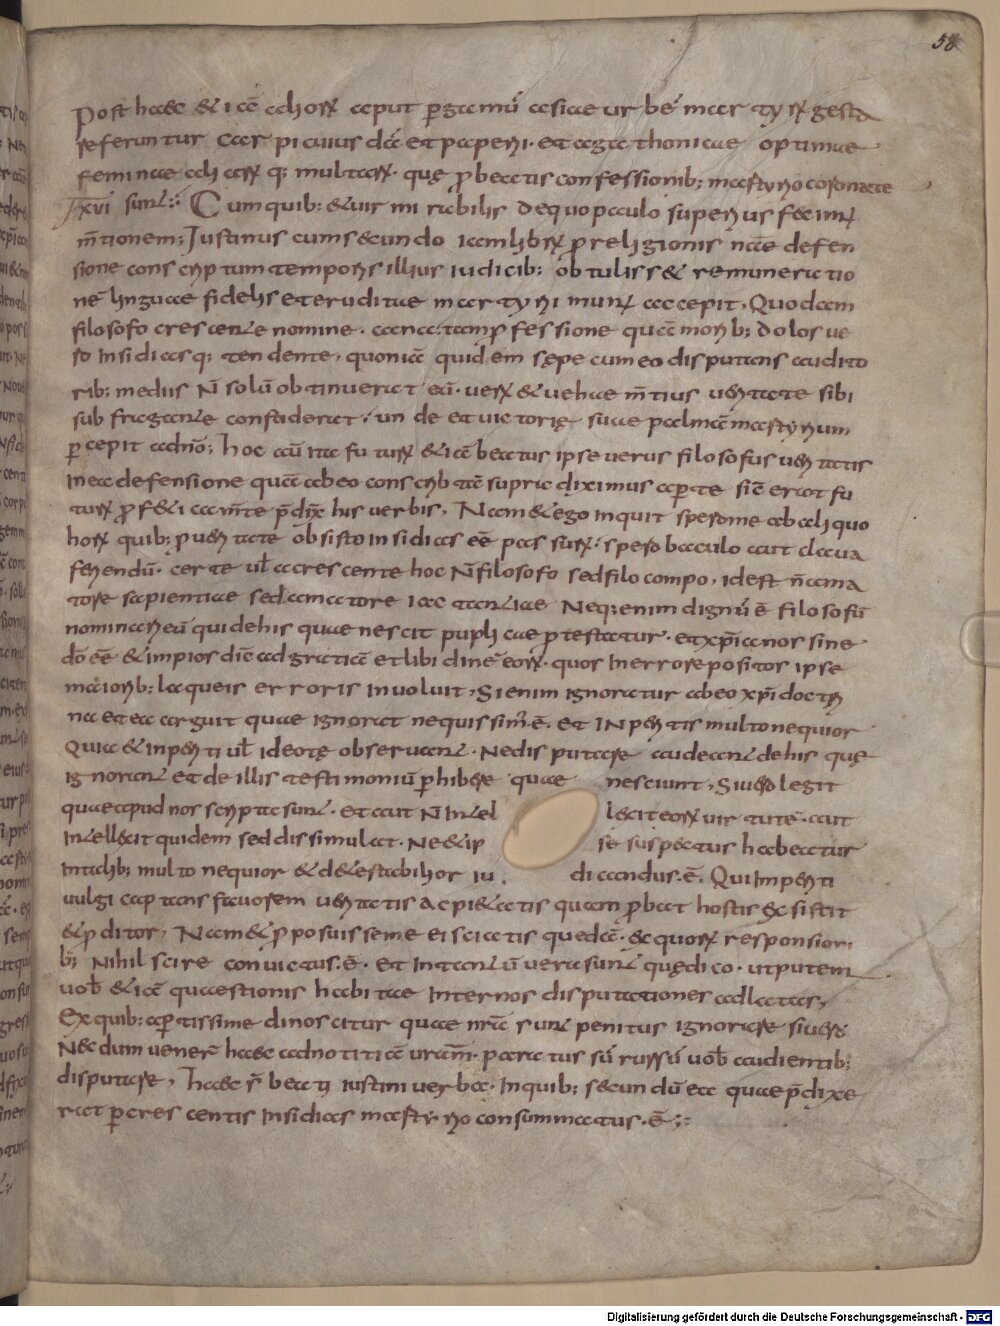 58
Post haec & iā ahorū aput pergamū asiae urbē martyrū gesta
referuntur carpi cuius dā et papiri · et agathonicae optimae
feminae aliarūq; multarū · quę p beatis confessionib; martyrio coronatae
sunt :· Cum quib; & uir mirabilis de quo paulo superius fecim'
mtionem; Iustinus cum secundo iam librū p religionis nrae defen
sione conscriptum temporis illius iudicib; obtuliss& remuneratio
nē linguae fidelis et eruditae martyrii mun' accepit, Quodam
filosofo crescente nomine · ac necē tam pfessione quā morib; dolose
so insidiasq; tendente, quoniā quidem sępe cum eo disputans audito
rib; mediis n̄ solū obtinuerat eū · uerū & uehementius ueritate sibi
suffragante confuderat ; unde et uictorię suae palmā martyrium
percepit a dn̄o ; hoc aūt ita futurū &iā beatus ipse uerus filosofus ueritatis
in ea defensione quā ab eo conscribtā supra diximus aperte sic erat fu
turū pf&ia ante p̄dixit his uerbis, Nam & ego inquit spero me ab aliquo
horū quib; p ueritate obsisto insidias eē passurū · spero baculo aut claua
feriendū · certe ul' a crescente hoc n̄ filosofo sed filocompo, id est n̄ ama
tore sapientiae sed amatore iactantiae Neq; enim dignū ē filosofū
nominari eū qui de his quae nescit puplicae ptestatur · et xpianos sine
dō eē & impios dicē ad gratiā et libidinē eorū · quos in errore positos ipse
maiorib; laqueis erroris inuoluit, Si enim ignoratur ab eo xpi doctri
na et ea arguit quae ignorat nequissim' ē · et inperitis multo nequior
Quia & inperiti ul' ideotę obseruant · Ne disputare audeant de his quę
ignorant et de illis testimoniū perhibere quae nesciunt, Si uero legit
quae apud nos scripta sunt · et aut n̄ intel legit eorū uirtutē · aut
intellegit quidem sed dissimulat · Ne & ip se suspectus habeatur
in talib; multo nequior & detestabilior iu dicandus · ē · Qui imperiti
uulgi captans fauorem ueritatis ac pi&atis quam pbat hostis exsistit
& pditor, Nam & pposuisse me ei sciatis quedā · & quorū responsiori
b; Nihil scire conuictus · ē · et in tantū uera sunt quę dico · ut putem
uob' & iā quaestionis habitae inter nos disputationes adlatas,
Ex quib; apertissime dinoscitur quae nrā sunt penitus ignorare siuero
Nec dum uenerē haec ad notitiā uram · paratus sū rursū uob' audientib;
disputare, haec s' beati iustini uerba · In quib; secundū ea quae p̄dixe
rat per crescentis insidias martyrio consummatus · ē ;:·
Digitalisierung gefördert durch die Deutsche Forschungsgemeinschaft - DFG